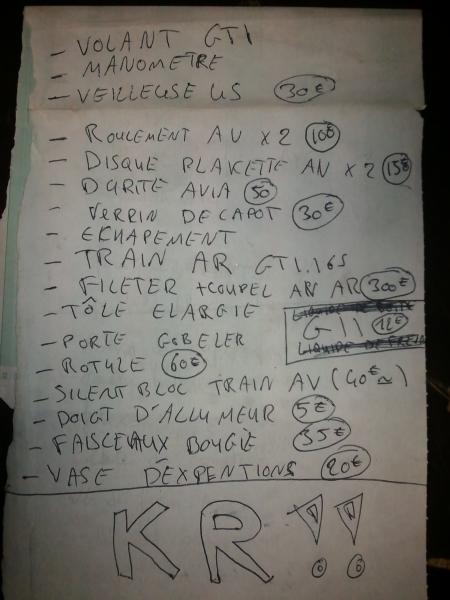 - VOLANT GTI
- MANOMETRE
- VEILLEUSE US 30€
- ROULEMENT AV X 2 10€
- DISQUE PLAKETTE AN X 2 15€
- DURITE AVIA 50
- VERRIN DE CAPOT 30€
- ECHAPEMENT
- TRAIN AR GTI.16S
- FILETER +COUPEL AN AR 300€
- TÔLE ELARGIE
LIQUIDE DE
GTI 12€
LIQUIDE DE FREIN
- PORTE GOBELER
- ROTULE 60€
- SILENT BLOC TRAIN AV (40€≃)
- DOIGT D'ALLUMEUR 5€
- FAISCEAUX BOUGIE 35€
- VASE D'EXPENTIONS 20€
KR !!